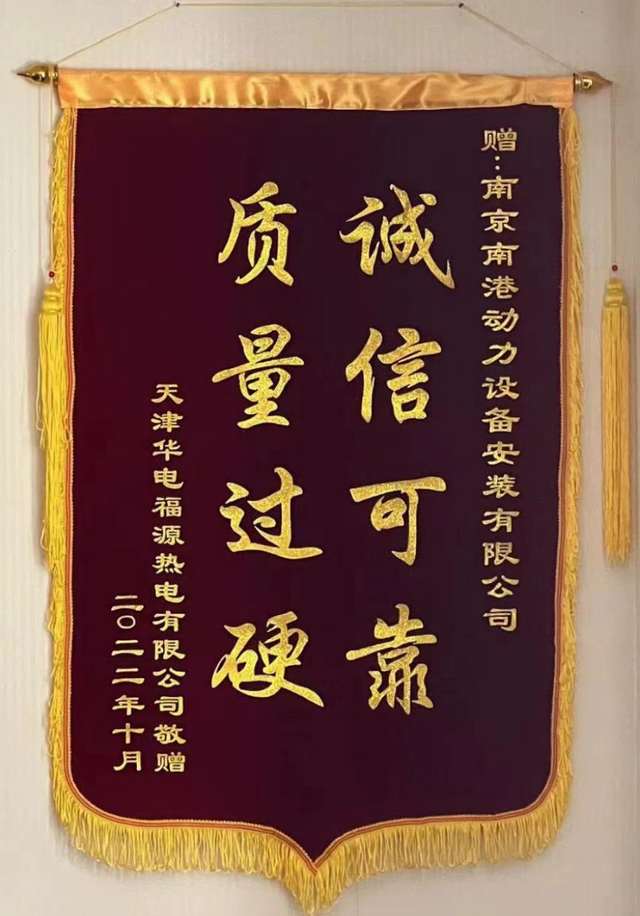 赠:南京南港动力设备安装有限公司
诚信可靠
质量过硬
天津华电福源热电有限公司敬赠
二〇二二年十月